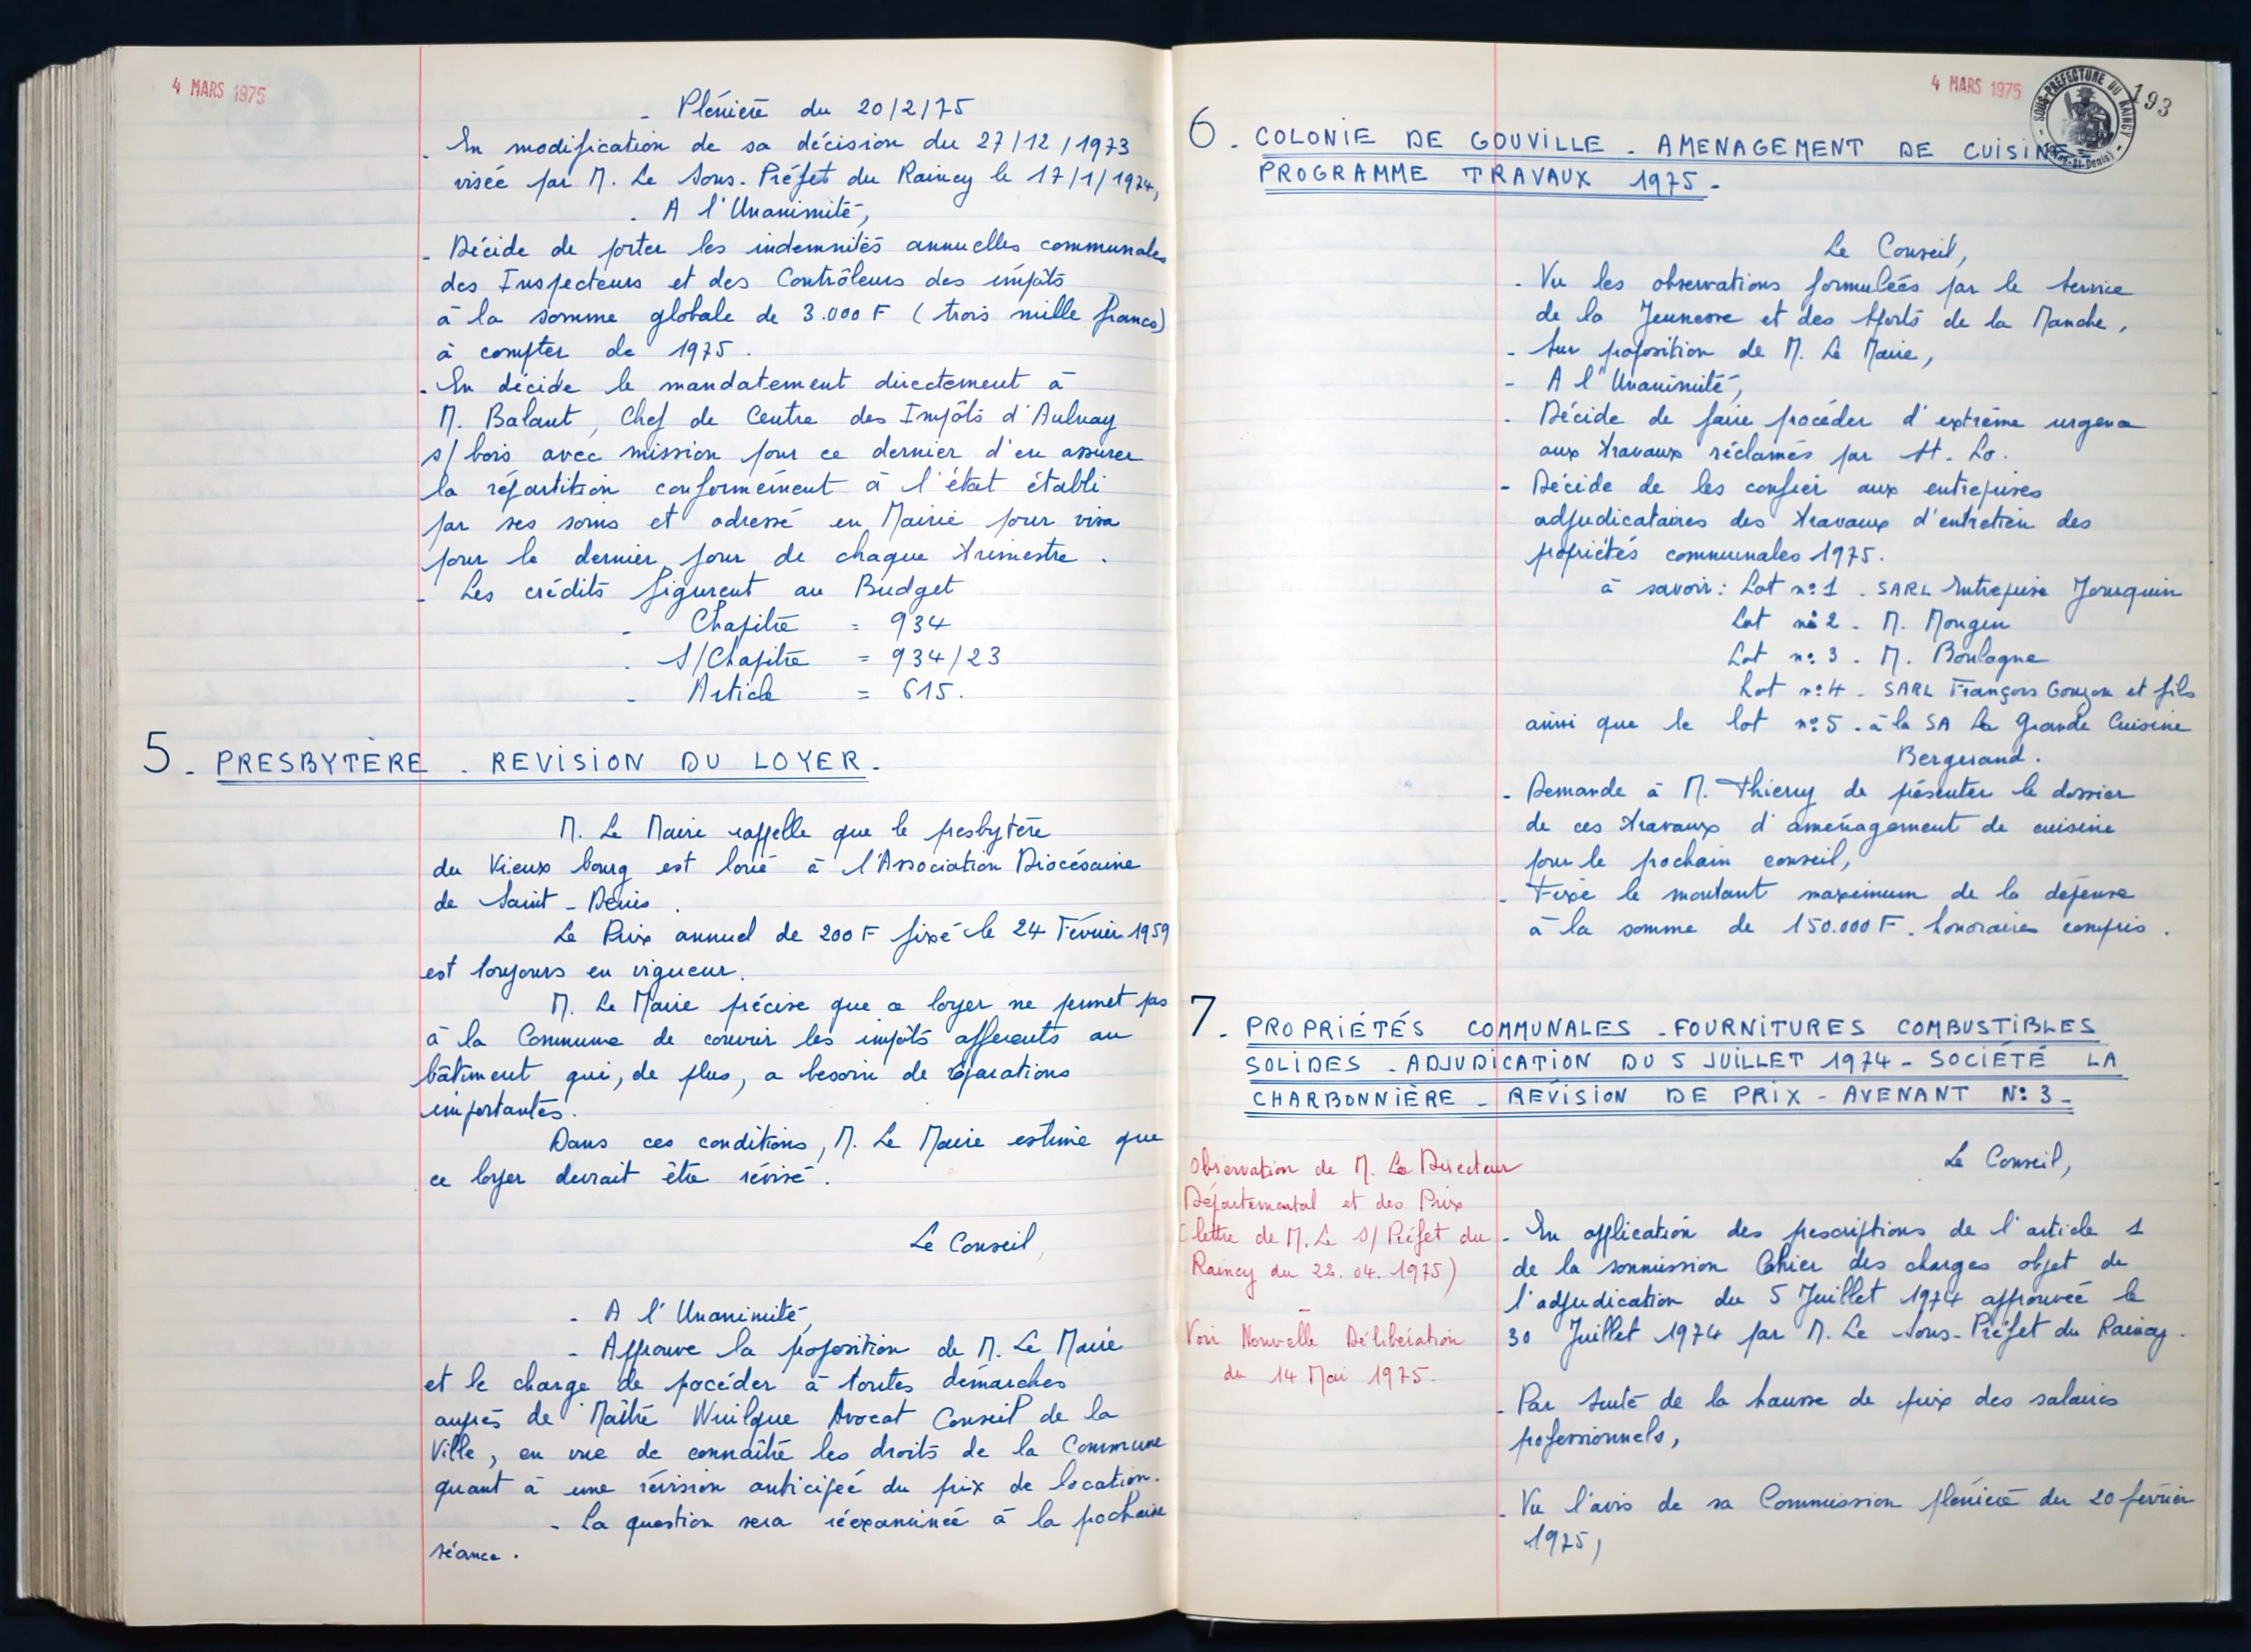 4 MARS 1975
- Plénière du 20/2/75
- En modification de sa décision du 27/12/1973
visée par M. Le Sous-Préfet du Raincy le 17/1/1974,
- A l'Unanimité,
- Décide de porter les indemnités annuelles communales
des Inspecteurs et des Contrôleurs des impôts
à la somme globale de 3.000 F (trois mille francs)
à compter de 1975.
- En décide le mandatement directement à
M. Balant, Chef de Centre des Impôts d'Aulnay
s/bois avec mission pour ce dernier d'en assurer
la répartition conformément à l'état établi
par ses soins et adressé en Mairie pour visa
pour le dernier jour de chaque trimestre.
- Les crédits figurent au Budget
- Chapitre = 934
- S/Chapitre = 934/23
- Article = 615.
5 - PRESBYTÈRE - REVISION DU LOYER -
M. Le Maire rappelle que le presbytère
du Vieux bourg est loué à l'Association Diocésaine
de Saint-Denis.
Le Prix annuel de 200 F fixé le 24 Février 1959
est toujours en vigueur.
M. Le Maire précise que ce loyer ne permet pas
à la Commune de couvrir les impôts afférents au
bâtiment qui, de plus, a besoin de réparations
importantes.
Dans ces conditions, M. Le Maire estime que
ce loyer devrait être révisé.
Le Conseil,
- A l'Unanimité,
- Approuve la proposition de M. Le Maire
et le charge de procéder à toutes démarches
auprès de Maître Wuilque Avocat Conseil de la
Ville, en vue de connaître les droits de la Commune
quant à une révision anticipée du prix de location.
- La question sera réexaminée à la prochaine
séance.
4 MARS 1975
SOUS-PREFECTURE DU RAINCY
(Sne-St-Denis)
193
6 - COLONIE DE GOUVILLE - AMENAGEMENT DE CUISINE
PROGRAMME TRAVAUX 1975 -
Le Conseil,
- Vu les observations formulées par le Service
de la Jeunesse et des Sports de la Manche,
- Sur proposition de M. Le Maire,
- A l'Unanimité,
- Décide de faire procéder d'extrême urgence
aux travaux réclamés par St. Lo.
- Décide de les confier aux entreprises
adjudicataires des travaux d'entretien des
propriétés communales 1975.
à savoir: Lot n°1 - SARL Entreprise Jonquin
Lot n°2 - M. Mongin
Lot n°3 - M. Boulogne
Lot n°4 - SARL François Gonzon et fils
ainsi que le lot n°5 - à la SA La Grande Cuisine
Bergerand.
- Demande à M. Thierry de présenter le dossier
de ces travaux d'aménagement de cuisine
pour le prochain conseil,
- Fixe le montant maximum de la dépense
à la somme de 150.000 F. honoraires compris.
7 - PROPRIÉTÉS COMMUNALES - FOURNITURES COMBUSTIBLES
SOLIDES - ADJUDICATION DU 5 JUILLET 1974 - SOCIÉTÉ LA
CHARBONNIÈRE - REVISION DE PRIX - AVENANT N° 3 -
Le Conseil,
Observation de M. Le Directeur
Départemental et des Prix
(lettre de M. Le S/Préfet du
Raincy du 22.04.1975)
-
Voir Nouvelle Délibération
du 14 Mai 1975.
- En application des prescriptions de l'article 1
de la soumission Cahier des charges objet de
l'adjudication du 5 Juillet 1974 approuvée le
30 Juillet 1974 par M. Le Sous-Préfet du Raincy.
- Par suite de la hausse de prix des salaires
professionnels,
- Vu l'avis de sa Commission plénière du 20 février
1975,